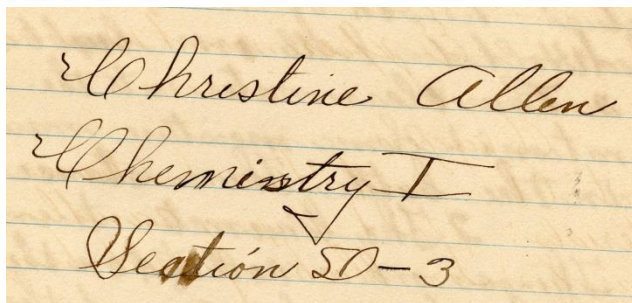 Christine Allen
Chemistry I
Section 50-3